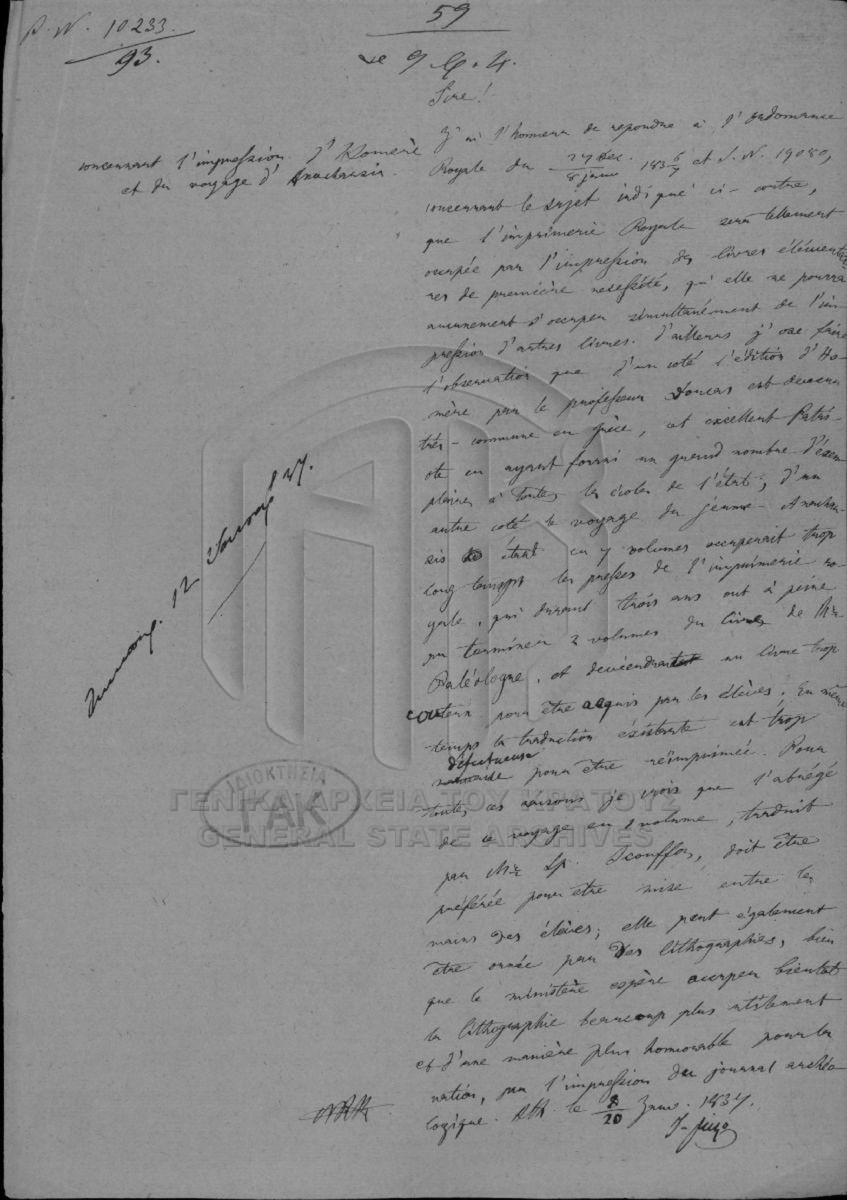 P. N. 10233
93.
59
le 9
Sire!
concernant l'impression d'Homère
et du voyage d'Anacharsis.
J'ai l'honneur de repondre à l'ordonnance
Royale du 27 Dec. / 8 janv 183 6/7 et S. N. 19080,
concernant le sujet indiqué ci-contre,
que l'imprimerie Royale sera tellement
occupée par l'impression des livres élémentai-
res de première necessité, qu'elle ne pourra
aucunement s'occuper simultanément de l'im-
pression d'autres livres. D'ailleurs j'ose faire
l'observation que d'un coté l'édition d'Ho-
mère par le professeur Doucas est devenu
très-commune en Grèce, cet excellent Patri-
ote en ayant fourni un grand nombre d'éxem-
plaires à toutes les écoles de l'état; d'un
autre coté le voyage du jeune Anachar-
sis étant en 7 volumes occuperait trop
long temps les presses de l'imprimerie ro-
yale, qui durant trois ans ont à peine
pu terminer 2 volumes du livre de Mr
Paléologue, et deviendrait un livre trop
couteux pour être acquis par les élèves. En même
temps la traduction éxistante est trop
défectueuse
pour être réimprimée. Pour
toutes ces raisons je crois que l'abrégé
de ce voyage en 1 volume, traduit
par Mr Sp. Scouffos, doit être
préférée pour etre mise entre les
mains des élèves; elle peut également
être ornée par des lithographies, bien
que le ministère espère occuper bientot
la lithographie beaucoup plus utilement
et d'une manière plus honorable pour la
nation, par l'impression du journal archéo-
logique. Ath. le 8/20 Janv. 1837.
12 27.
ΙΔΙΟΚΤΗΣΙΑ
ΓΑΚ
ΓΕΝΙΚΑ ΑΡΧΕΙΑ ΤΟΥ ΚΡΑΤΟΥΣ
GENERAL STATE ARCHIVES